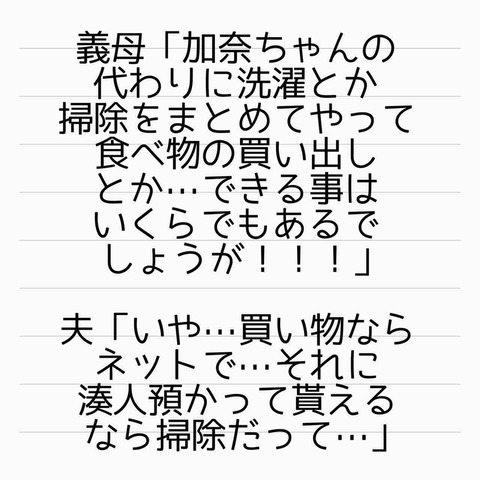 義母「加奈ちゃんの
代わりに洗濯とか
掃除をまとめてやって
食べ物の買い出し
とか…できる事は
いくらでもあるで
しょうが！！！」
夫「いや…買い物なら
ネットで…それに
湊人預かって貰える
なら掃除だって…」